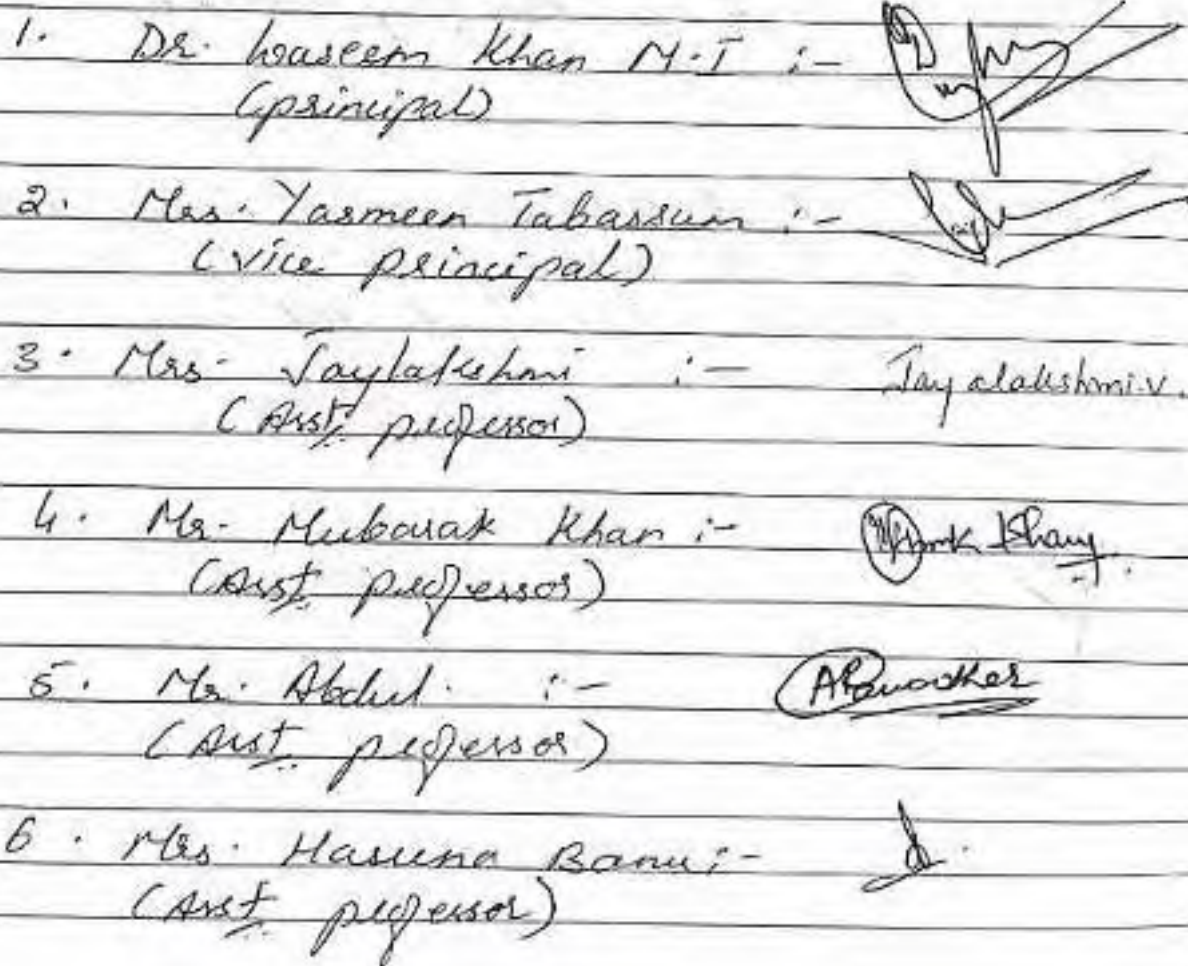 1. Dr. Waseem Khan M.I :-
(principal)
2. Mrs. Yasmeen Tabassum :-
(vice principal)
3. Mrs. Jaylakshmi :- Jayalakshmi.v.
(Asst. professor)
4. Mr. Mubarak Khan :- Khan
(Asst. professor)
5. Mr. Abdul. :-
(Asst. professor)
6. Mrs. Haseena Banu :-
(Asst. professor)